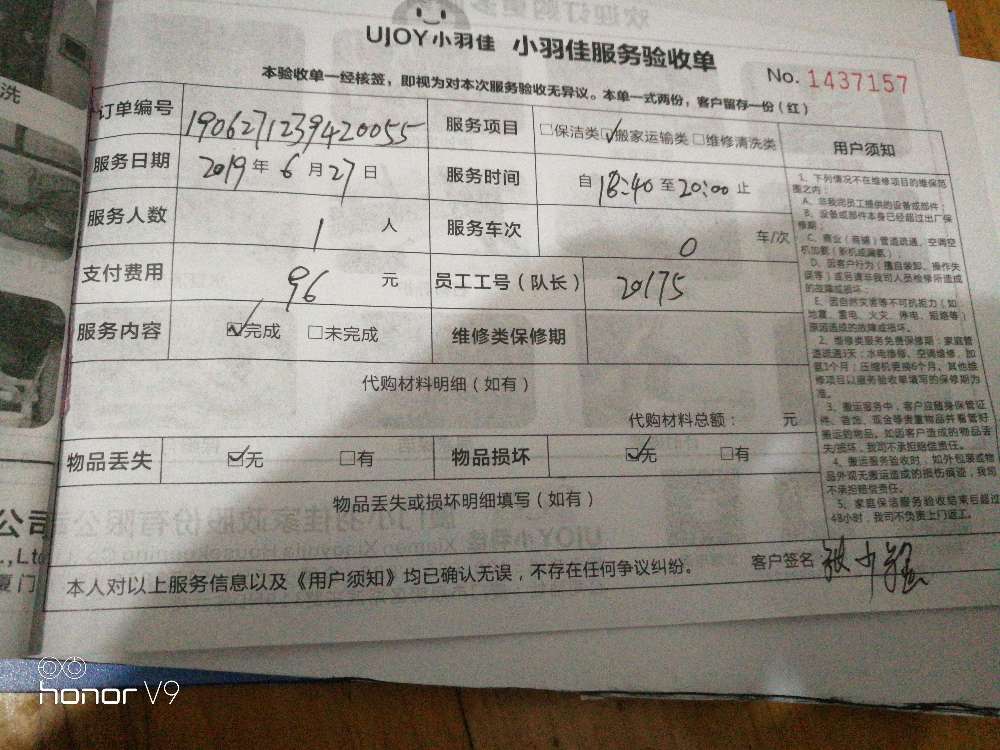 UJOY小羽佳 小羽佳服务验收单
No. 1437157
本验收单一经核签，即视为对本次服务验收无异议。本单一式两份，客户留存一份（红）
订单编号 1906271239420055 服务项目 □保洁类 ☑搬家运输类 □维修清洗类
服务日期 2019年6月27日 服务时间 自18:40至20:00止
服务人数 1 人 服务车次 0 车/次
支付费用 96 元 员工工号（队长） 20175
服务内容 ☑完成 □未完成 维修类保修期
代购材料明细（如有）
代购材料总额： 元
物品丢失 ☑无 □有 物品损坏 ☑无 □有
物品丢失或损坏明细填写（如有）
本人对以上服务信息以及《用户须知》均已确认无误，不存在任何争议纠纷。
客户签名 张
用户须知
1、下列情况不在维修项目的维保范围之内：
A、非我司员工提供的设备或部件；
B、设备或部件本身已经超过出厂保修期；
C、商业（商铺）管道疏通、空调空机加氨（新机或漏氨）
D、因客户行为（擅自装卸、操作失误等）或另请非我司人员检修所造成的故障或损坏
E、因自然灾害等不可抗拒力（如地震、雷电、火灾、停电、短路等）原因造成的故障或损坏。
2、维修类服务免费保修期：家庭管道疏通3天；水电维修、空调维修、加氨3个月；压缩机更换6个月。其他维修项目以服务验收单填写的保修期为准。
3、搬运服务中，客户应随身保管证件、首饰、现金等贵重物品并看管好搬运的物品。如因客户造成的物品丢失/损坏，我司不承担赔偿责任。
4、搬运服务验收时，如外包装或物品外观无搬运造成的损伤痕迹，我司不承担赔偿责任。
5、家庭保洁服务验收结束后超过48小时，我司不负责上门返工。
洗
公司
.,Ltd
厦门
honor V9